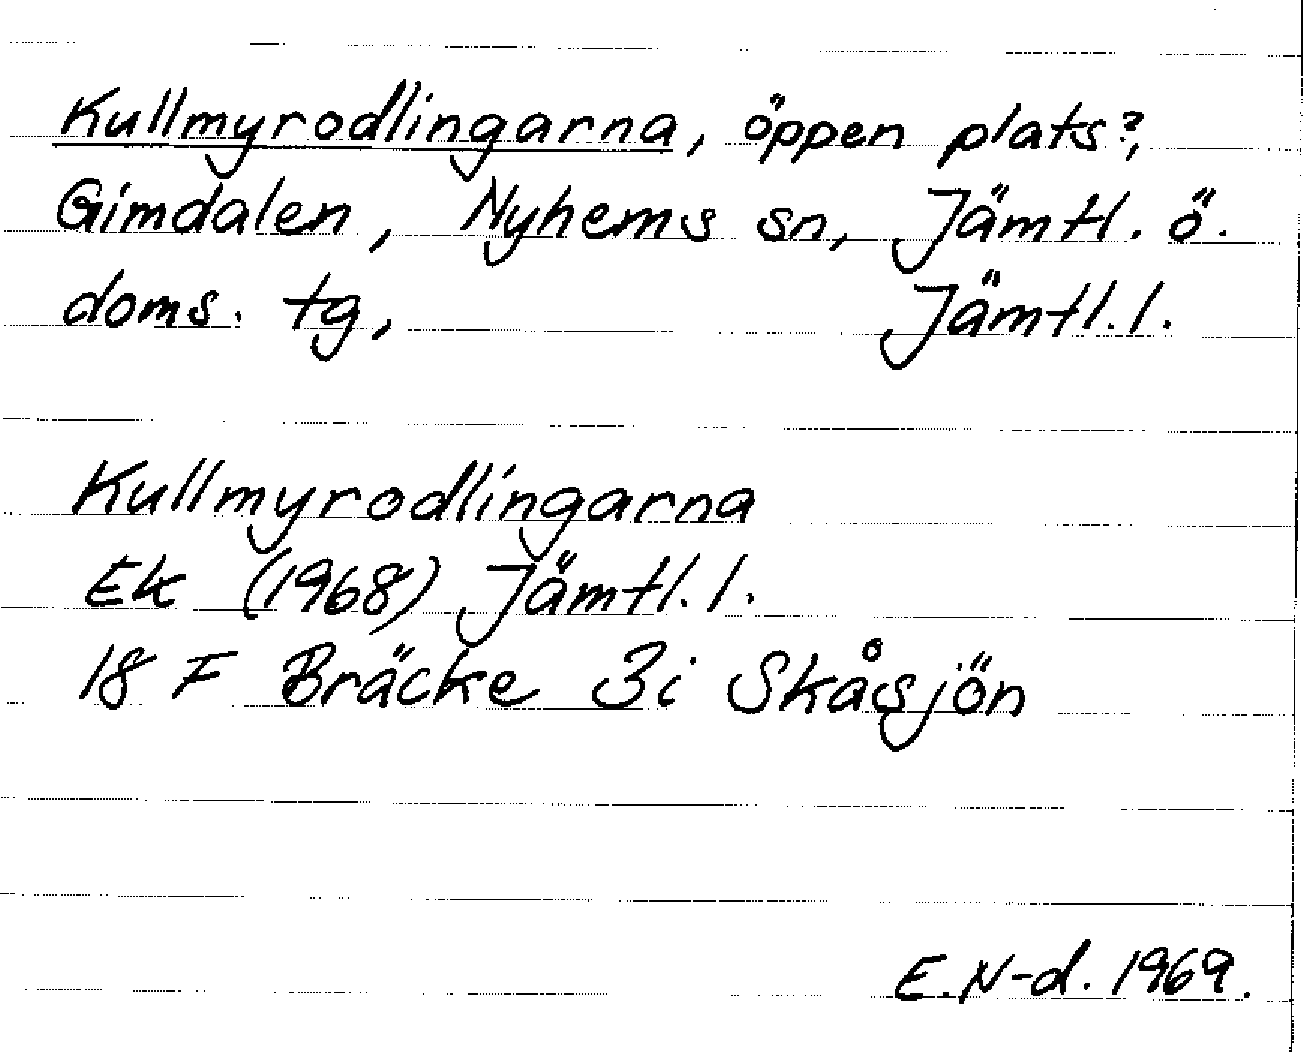 Kullmyrodlingarna, öppen plats?,
Gimdalen, Nyhems sn, Jämtl. ö.
doms. tg, Jämtl.l.
Kullmyrodlingarna
Ek (1968) Jämtl.l.
18 F Bräcke 3i Skåsjön
E.N-d. 1969.